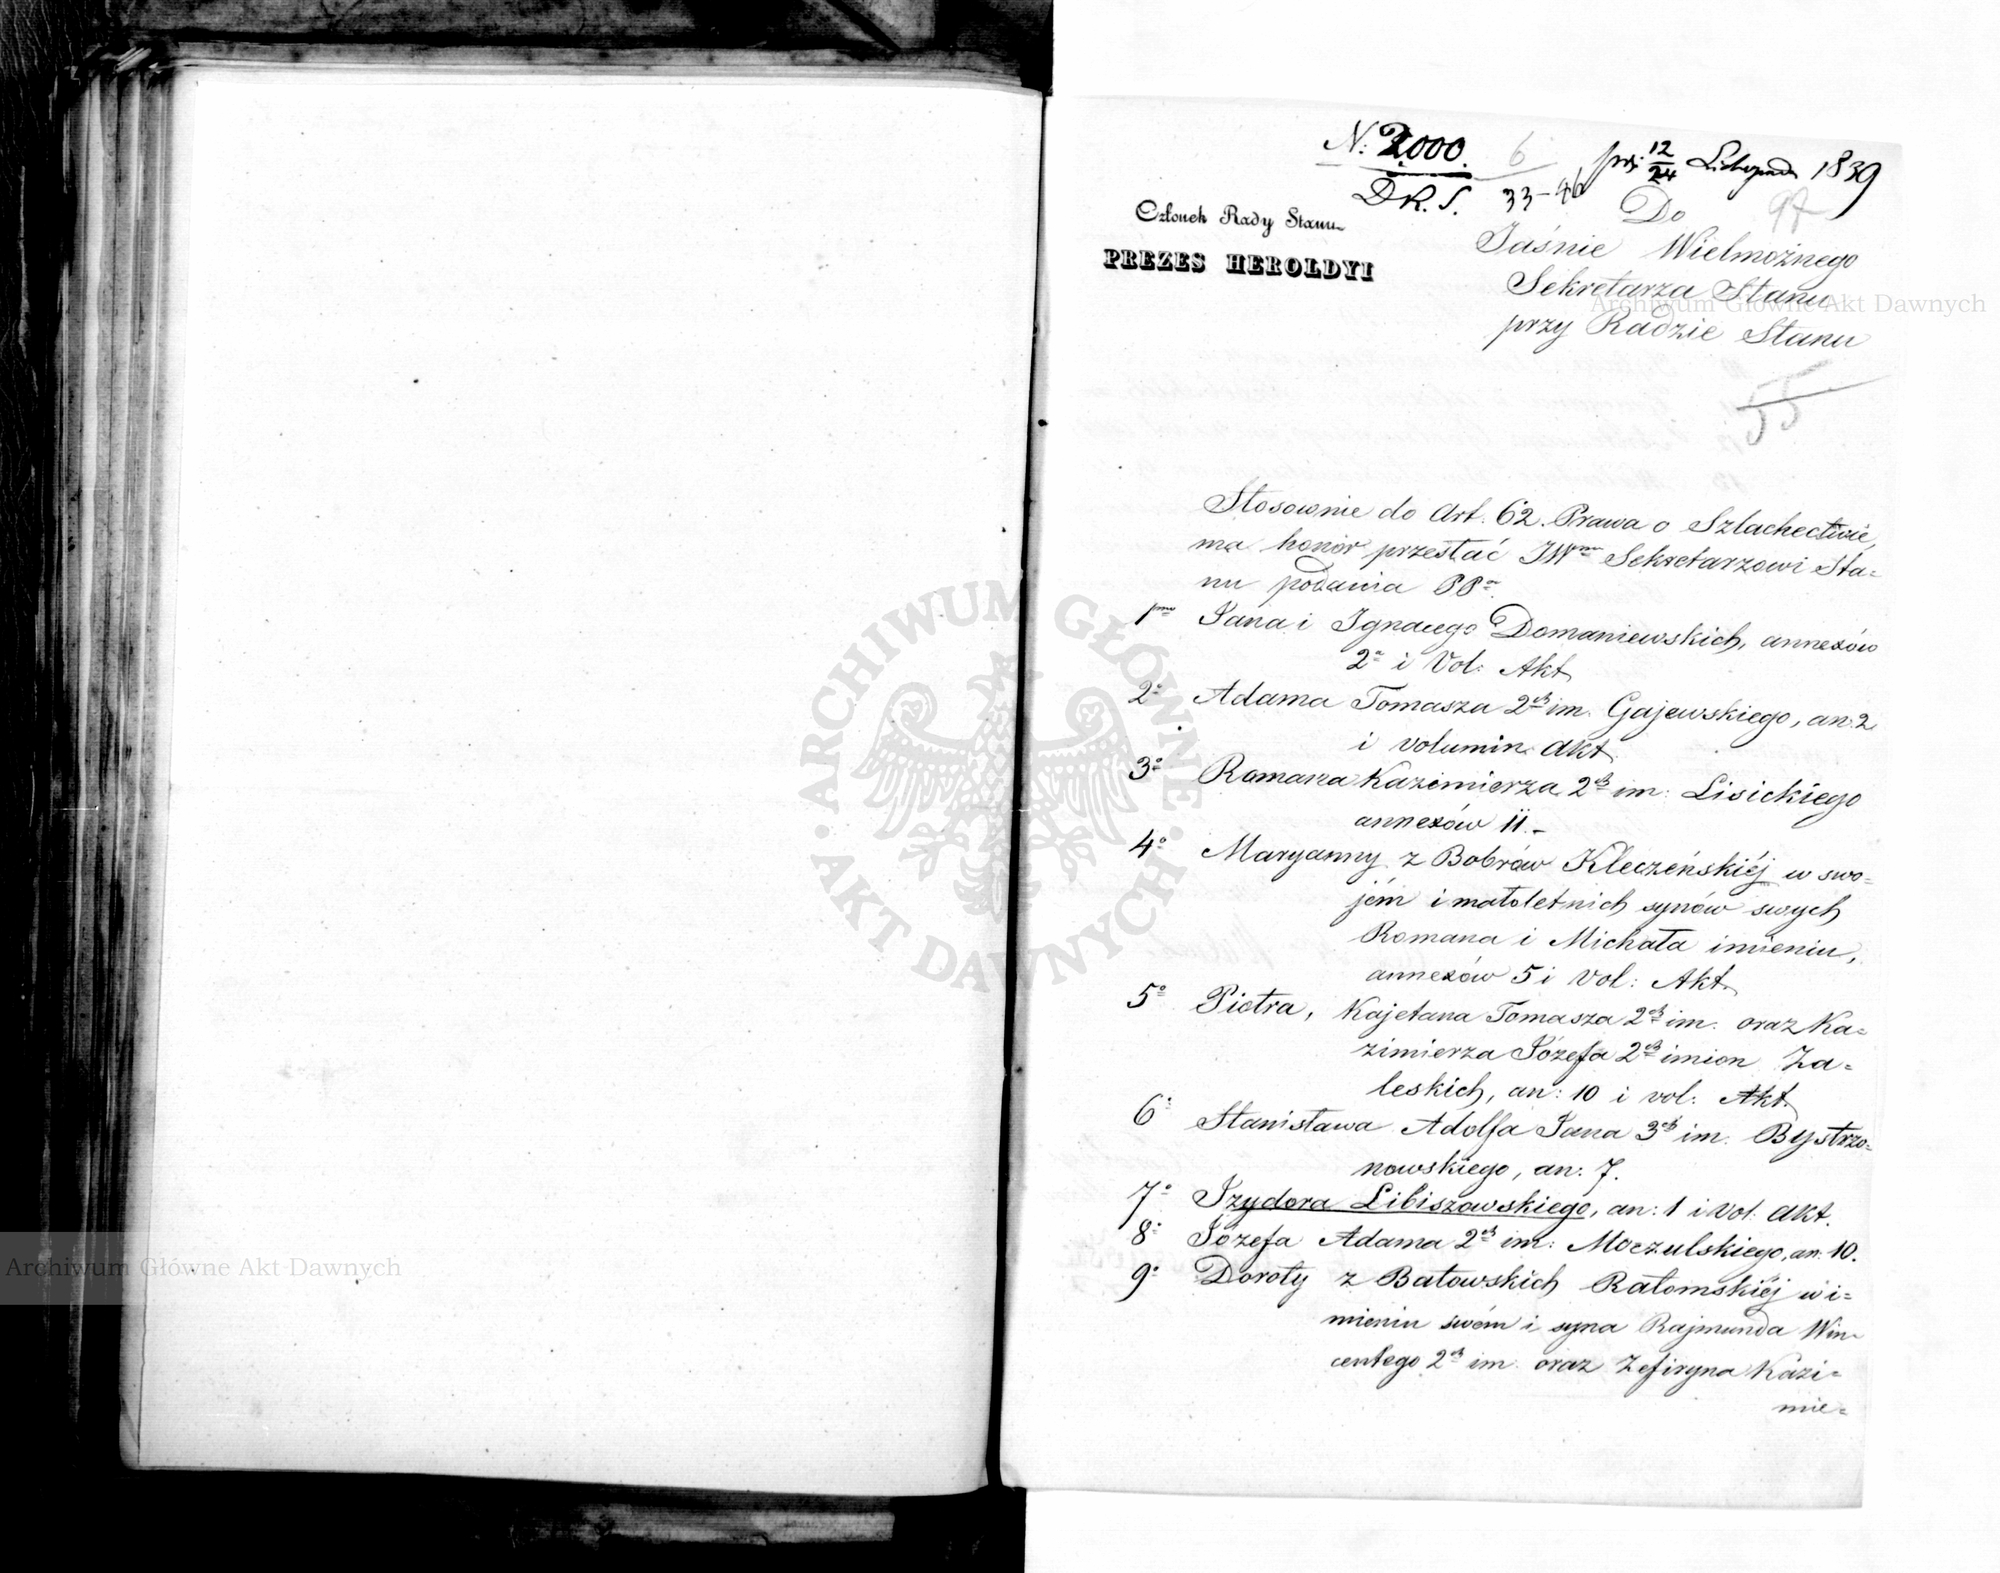 N. 2000. 6 prz: 12/24 Listopada 1839
D R. S. 33-46
Członek Rady Stanu
PREZES HEROLDYI
Do 97
Jaśnie Wielmożnego
Sekretarza Stanu
przy Radzie Stanu
55
Stosownie do Art. 62. Prawa o Szlachectwie,
ma honor przesłać JWmu Sekretarzowi Sta=
nu podania PP.
1mo Jana i Ignacego Domaniewskich, annexów
2a i Vol: Akt
2o Adama Tomasza 2ch im. Gajewskiego, an: 2
i volumin Akt
3o Romana Kazimierza 2ch im: Lisickiego
annexów 11.-
4o Maryanny z Bobrów Kleczeńskiéj w swo=
jém i małoletnich synów swych
Romana i Michała imieniu,
annexów 5 i Vol: Akt.
5o Piotra, Kajetana Tomasza 2ch im. oraz Ka=
zimierza Józefa 2ch imion Za=
leskich, an: 10 i vol: Akt.
6o Stanisława Adolfa Jana 3ch im. Bystrzo=
nowskiego, an: 7.
7o Izydora Libiszowskiego, an: 1 i Vol: Akt.
8o Józefa Adama 2ch im: Moczulskiego, an: 10.
9o Doroty z Batowskich Ratomskiéj w i=
mieniu swém i syna Rajmunda Win=
centego 2ch im. oraz Zefiryna Kazi=
mie=
Archiwum Główne Akt Dawnych
Archiwum Główne Akt Dawnych
ARCHIWUM GŁÓWNE AKT DAWNYCH